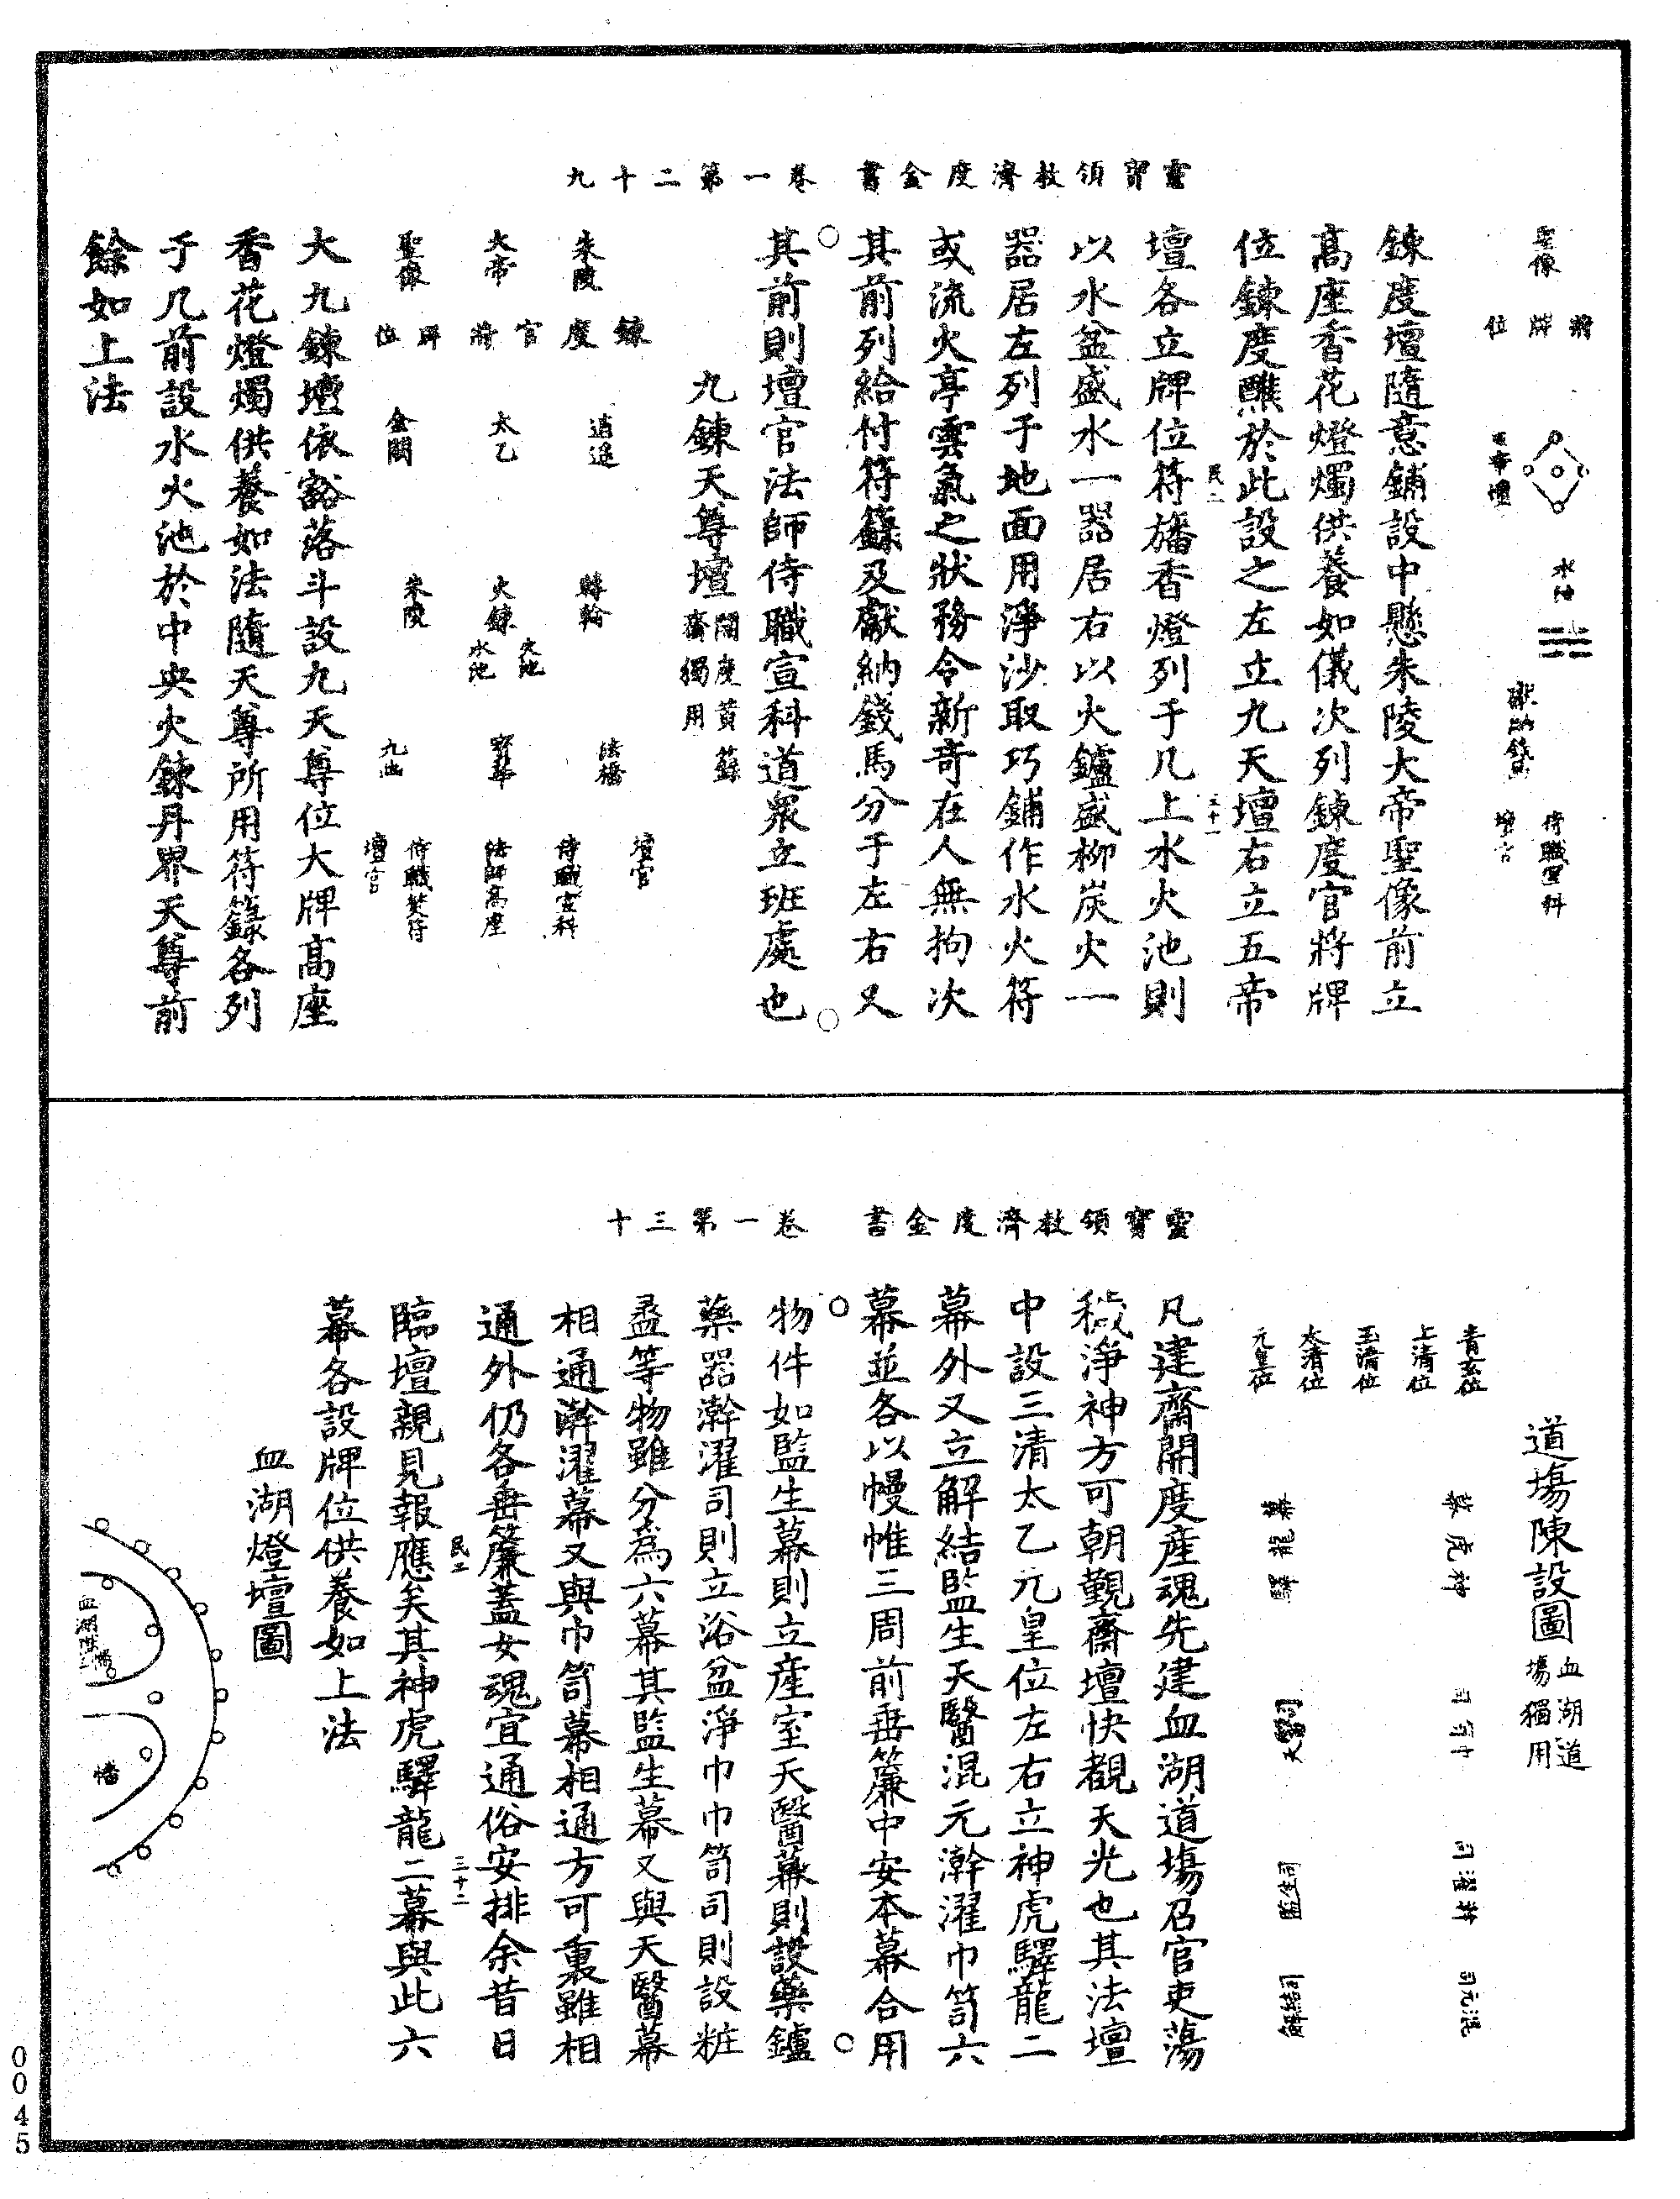 靈寶領教濟度金書　卷一第二十九
聖像
將
牌
位
水池
五帝壇
獻納錢馬
侍職宣科
壇官
鍊度壇隨意鋪設中懸朱陵大帝聖像前立
高座香花燈燭供養如儀次列鍊度官將牌
位鍊度醮於此設之左立九天壇右立五帝
民二
三十一
壇各立牌位符旛香燈列于几上水火池則
以水盆盛水一器居右以火鑪盛柳炭火一
器居左列于地面用淨沙取巧鋪作水火符
或流火亭雲氣之狀務令新奇在人無拘次
其前列給付符籙及獻納錢馬分于左右又
其前則壇官法師侍職宣科道眾立班處也
九鍊天尊壇開度黃籙齋獨用
朱陵
大帝
聖像
鍊
度
官
將
牌
位
逍遙
太乙
金闕
轉輪
火鍊
朱陵
火池
水池
法橋
寶華
九幽
壇官
侍職宣科
法師高座
侍職焚符
壇官
大九鍊壇依豁落斗設九天尊位大牌高座
香花燈燭供養如法隨天尊所用符籙各列
于几前設水火池於中央火鍊丹界天尊前
餘如上法
靈寶領教濟度金書　卷一第三十
道場陳設圖血湖道場獨用
青玄位
上清位
玉清位
太清位
元皇位
神虎幕
驛龍幕
巾笥司
天醫司
澣濯司
監生司
混元司
解結司
凡建齋開度產魂先建血湖道場召官吏蕩
穢淨神方可朝覲齋壇快覩天光也其法壇
中設三清太乙元皇位左右立神虎驛龍二
幕外又立解結監生天醫混元澣濯巾笥六
幕並各以幔帷三周前垂簾中安本幕合用
物件如監生幕則立產室天醫幕則設藥鑪
藥器澣濯司則立浴盆淨巾巾笥司則設粧
盝等物雖分為六幕其監生幕又與天醫幕
相通澣濯幕又與巾笥幕相通方可裏雖相
通外仍各垂簾蓋女魂宜通俗安排余昔日
民二
三十二
臨壇親見報應矣其神虎驛龍二幕與此六
幕各設牌位供養如上法
血湖燈壇圖
幡
0045